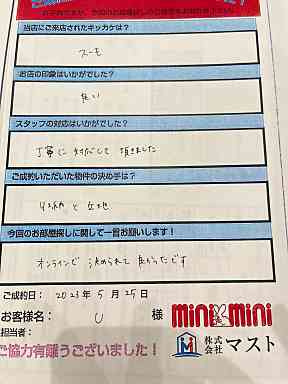 当店にご来店されたキッカケは？
スーモ
お店の印象はいかがでした？
良い
スタッフの対応はいかがでした？
丁寧に対応して頂きました
ご成約いただいた物件の決め手は？
と 立地
今回のお部屋探しに関して一言お願いします！
オンラインで 決められて 良かったです
ご成約日： 2023年 5月 25日
お客様名： U 様
mini mini
担当者：
株式会社 マスト
ご協力有難うございました！